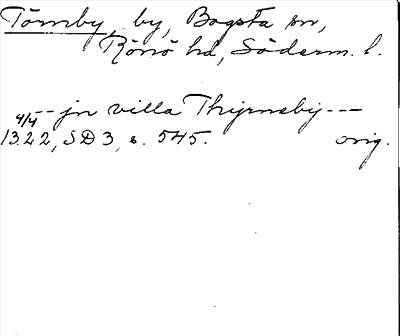 Törnby, by, Bogsta sn,
Rönö hd, Söderm. l.
--- jn villa Thyrnæby ---
4/4
1322, SD 3, s. 545. orig.